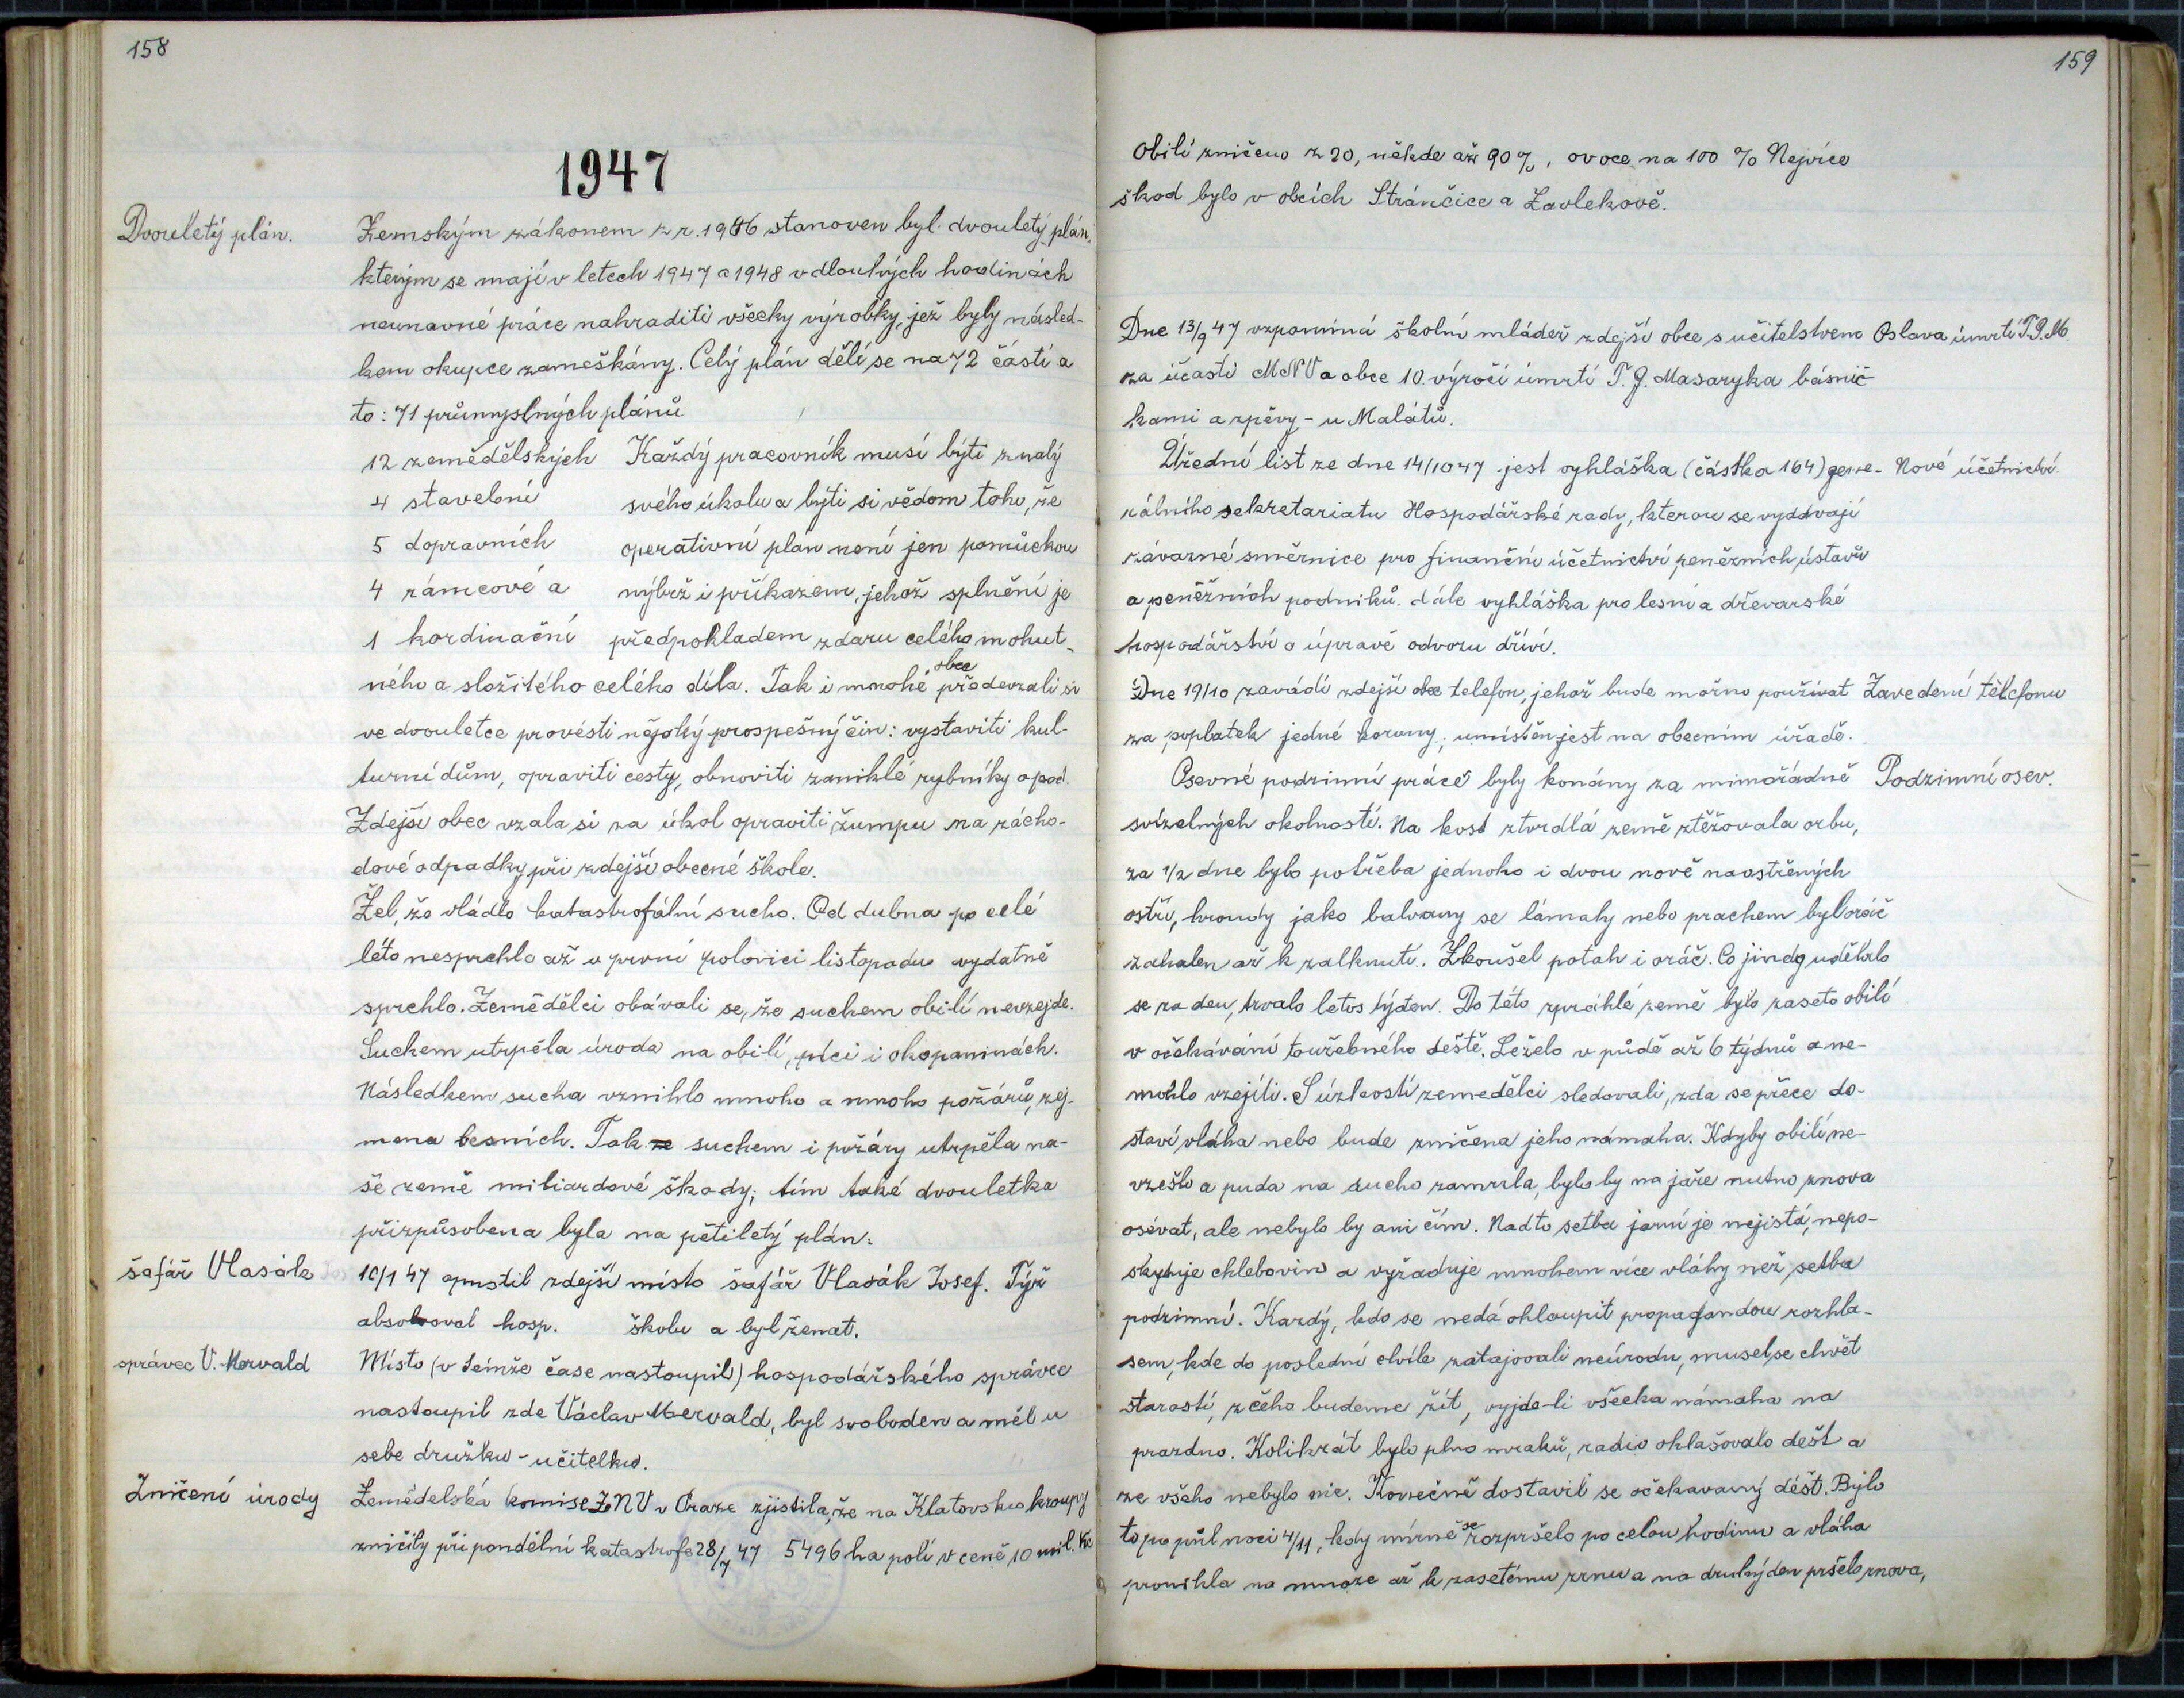 158
1947
Dvouletý plán.
Zemským zákonem z r. 1946 stanoven byl dvouletý plán,
kterým se mají v letech 1947 a 1948 v dlouhých hodinách
neunavné práce nahraditi všecky výrobky, jež byly násled-
kem okupce zameškány. Celý plán dělí se na 72 částí a
to: 71 průmyslných plánů
12 zemědělských Každý pracovník musí býti znalý
4 stavební svého úkolu a býti si vědom toho, že
5 dopravních operativní plán není jen pomůckou
4 rámcové a nýbrž i příkazem, jehož splnění je
1 kordinační předpokladem zdaru celého mohut-
ného a složitého celého díla. Tak i mnohé obce předevzali si
ve dvouletce provésti nějaký prospešný čin: vystaviti kul-
turní dům, opraviti cesty, obnoviti zaniklé rybníky a pod.
Zdejší obec vzala si za úkol opraviti žumpu na zácho-
dové odpadky při zdejší obecné škole.
Žel, že vládlo katastrofální sucho. Od dubna po celé
léto nesprchlo až v první polovici listopadu vydatně
sprchlo. Zemědělci obávali se, že suchem obilí nevzejde.
Suchem utrpěla úroda na obilí, píci i okopaninách.
Následkem sucha vzniklo mnoho a mnoho požárů, zej-
mena lesních. Tak ze suchem i požáry utrpěla na-
še země miliardové škody; tím také dvouletka
přizpůsobena byla na pětiletý plán.
šafář Vlasák
10/1 47 opustil zdejší místo šafář Vlasák Josef. Týž
absolvoval hosp. školu a byl ženat.
správec V. Mervald
Místo (v temže čase nastoupil) hospodářského správce
nastoupil zde Václav Mervald, byl svoboden a měl u
sebe družku - učitelku.
Zničení úrody
Zemědelská komise ZNV v Praze zjistila, že na Klatovsku kroupy
zničily při pondělní katastrofe 28/7 47 5496 ha polí v ceně 10 mil. Kč
159
Obilí zničeno z 20, někde až 90%, ovoce na 100 % Nejvíce
škod bylo v obcích Stránčice a Zavlekově.
Dne 13/9 47 vzpomíná školní mládež zdejší obce s učitelstvem Oslava úmrtí T.G.M.
za účasti MNV a obce 10. výročí úmrtí T. G. Masaryka básnič-
kami a zpěvy - u Malátů.
Úřední list ze dne 14/10 47 jest vyhláška (částka 164) gene- Nové účetnictví.
rálního sekretariatu Hospodářské rady, kterou se vyddvají
závazné směrnice pro finanční účetnictví peněžních ústavů
a peněžních podniků. dále vyhláška pro lesní a dřevarské
hospodářství o úpravě odvozu dříví.
Dne 19/10 zavádí zdejší obec telefon, jehož bude možno používat Zavedení telefonu
za poplatek jedné koruny; umístěn jest na obecním úřadě.
Osevné podzimní práce byly konány za mimořádně Podzimní osev.
svízelných okolností. Na kost ztvrdlá země ztěžovala orbu,
za 1/2 dne bylo potřeba jednoho i dvou nově naostřených
ostří, hroudy jako balvany se lámaly nebo prachem byl oráč
zahalen až k zalknutí. Zkoušel potah i oráč. Co jindy udělalo
se za den, trvalo letos týden. Do této zpráhlé země bylo zaseto obilí
v očekávání toužebného deště. Leželo v půdě až 6 týdnů a ne-
mohlo vzejíti. S úzkostí zemedělci sledovali, zda se přece do-
staví vláha nebo bude zničena jeho námaha. Kdyby obilí ne-
vzešlo a puda na sucho zamrzla, bylo by na jaře nutno znova
osévat, ale nebylo by ani čím. Nadto setba jarní je nejistá, nepo-
skytuje chlebovin a vyžaduje mnohem více vláhy než setba
podzimní. Kazdý, kdo se nedá ohloupit propagandou rozhla-
sem, kde do poslední chvíle zatajovali neúrodu, musel se chvět
starostí, z čeho budeme žít, vyjde-li všecka námaha na
prazdno. Kolikrát bylo plno mraků, radio ohlašovalo dešť a
ze všeho nebylo nic. Konečně dostavil se očekavaný déšť. Bylo
to po půl noci 4/11, kdy mírně se rozpršelo po celou hodinu a vláha
pronikla na mnoze až k zasetému zrnu a na druhý den pršelo znova,